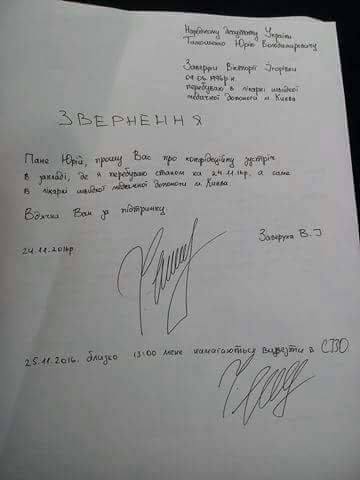 Народному депутату України
Тимошенко Юрію Володимировичу
Заверухи Вікторії Ігорівни
перебуваю в лікарні швидкої
медичної допомоги м. Києва
ЗВЕРНЕННЯ
Пане Юрій, прошу Вас про конфіденційну зустріч
в закладі, де я перебуваю станом на 24.11.16р. а саме
в лікарні швидкої медичної допомоги м. Києва
Вдячна Вам за підтримку.
24.11.2016р. Заверуха В. І
25.11.2016. близько 13:00 мене намагаються вивезти в СІЗО.